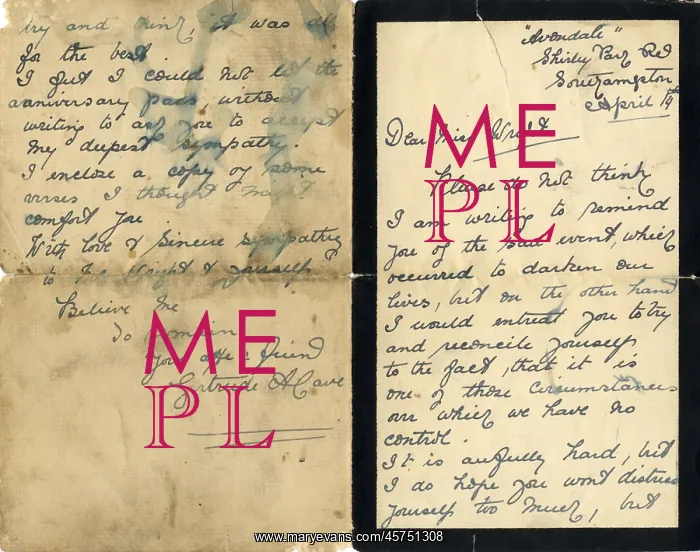 "Avondale"
Shirley Park Rd
Southampton
April 19
Dear Miss Wright
Please do not think
I am writing to remind
you of the sad event, which
occurred to darken our
lives, but on the other hand
I would entreat you to try
and reconcile yourselfs
to the fact, that it is
one of those circumstances
our which we have no
control.
It is awfully hard, but
I do hope you wont distress
yourself too much, but
try and think, it was all
for the best.
I felt I could not let the
anniversary pass, without
writing to ask you to accept
my deepest sympathy.
I enclose a copy of some
verses I thought might
comfort you
With love & sincere sympathy
to Mr Wright & yourself
Believe me
to remain
your affec: friend
Gertrude A Cave
ME
PL
ME
PL
www.maryevans.com/45751308